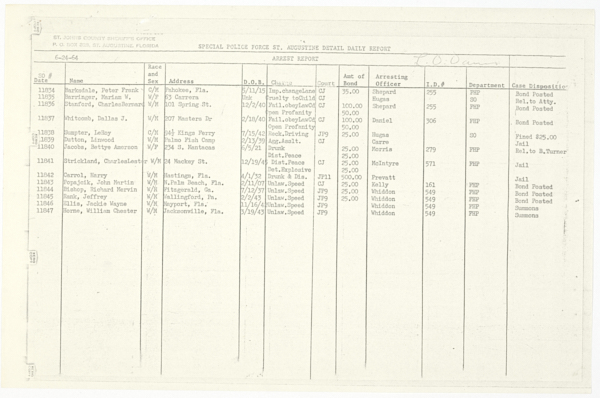 ST. JOHNS COUNTY SHERIFF'S OFFICE
SPECIAL POLICE FORCE ST. AUGUSTINE DETAIL DAILY REPORT
6-28-64 ARREST REPORT L. O. Davis
SO # Date Name Race and Sex Address D.O.B. Charge Court Amt of Bond Arresting Officer I.D.# Department Case Disposition
11834 Barksdale, Peter Frank C/M Pahokee, Fla. 5/11/19 Imp.changeLane CJ 35.00 Shepard 255 FHP Bond Posted
11835 Barringer, Marion W. W/F 83 Carrera Unk Cruelty toChild CJ Hugas SO Rel.to Atty.
11836 Stanford, CharlesHerman W/M 101 Spring St. 12/2/40 Fail.obeyLawOf CJ 100.00 Shepard 255 FHP Bond Posted
Open Profanity 50.00
11837 Whitcomb, Dallas J. W/M 207 Masters Dr 2/12/40 Fail.obeyLawOf CJ 100.00 Daniel 306 FHP Bond Posted
Open Profanity 50.00
11838 Sumpter, LeRoy C/M Kings Ferry 7/15/42 Reck.Driving JP9 25.00 Hugas SO Fined $25.00
11839 Dutton, Linwood W/M Palms Fish Camp 2/13/39 Agg.Asslt. CJ Carre Jail
11840 Jacobs, Bettye Amerson W/F 234 S. Matanzas 4/5/21 Drunk 25.00 Harris 279 FHP Rel.to B.Turner
Dist.Peace 25.00
11841 Strickland, Charleslester W/M 24 Mackey St. 12/19/45 Dist.Peace CJ 25.00 McIntyre 571 FHP Jail
Det.Explosive 25.00
11842 Carrel, Harry W/M Hastings, Fla. 4/1/32 Drunk & Dis. JP11 500.00 Prevatt Jail
11843 Papajcik, John Martin W/M W.Palm Beach, Fla. 2/11/07 Unlaw.Speed CJ 25.00 Kelly 161 FHP Bond Posted
11844 Bishop, Richard Marvin W/M Fitzgerald, Ga. 7/12/37 Unlaw.Speed JP9 25.00 Whiddon 549 FHP Bond Posted
11845 Hank, Jeffrey W/M Wallingford, Pa. 2/2/43 Unlaw.Speed JP9 25.00 Whiddon 549 FHP Bond Posted
11846 Ellis, Jackie Wayne W/M Mayport, Fla. 11/16/4 Unlaw.Speed JP9 Whiddon 549 FHP Summons
11847 Horne, William Chester W/M Jacksonville, Fla. 3/19/43 Unlaw.Speed JP9 Whiddon 549 FHP Summons